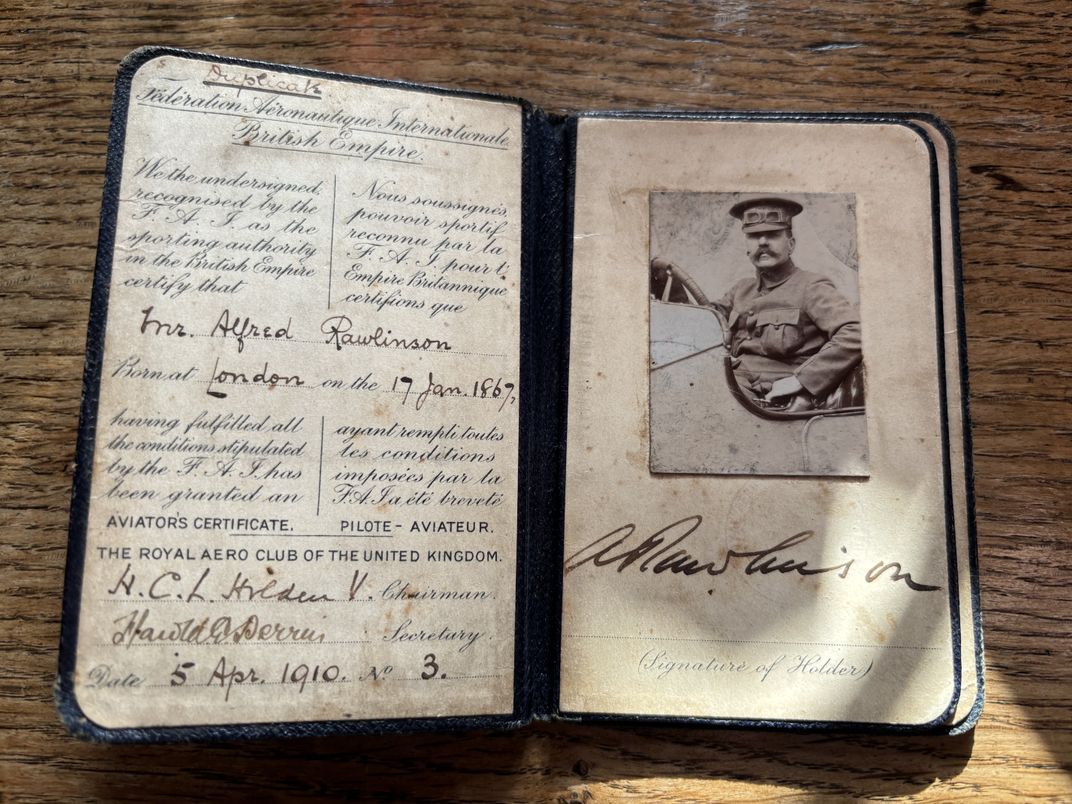 Duplicate
Fédération Aéronautique Internationale
British Empire.
We the undersigned,
recognised by the
F. A. I. as the
sporting authority
in the British Empire
certify that
Nous soussignés,
pouvoir sportif
reconnu par la
F. A. I. pour l'
Empire Britannique
certifions que
Mr. Alfred Rawlinson
Born at London on the 17 Jan. 1867,
having fulfilled all
the conditions stipulated
by the F. A. I. has
been granted an
ayant rempli toutes
les conditions
imposées par la
F.A.I. a été breveté
AVIATOR'S CERTIFICATE. PILOTE-AVIATEUR.
THE ROYAL AERO CLUB OF THE UNITED KINGDOM.
H. C. L. Holden V. Chairman.
Harold E Perrin Secretary.
Date 5 Apr. 1910. No 3.
A Rawlinson
(Signature of Holder)